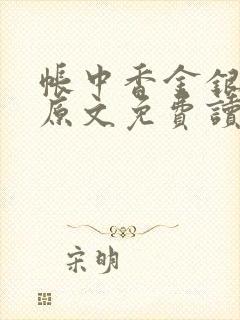 帳中香金銀
原文免費讀
宋明